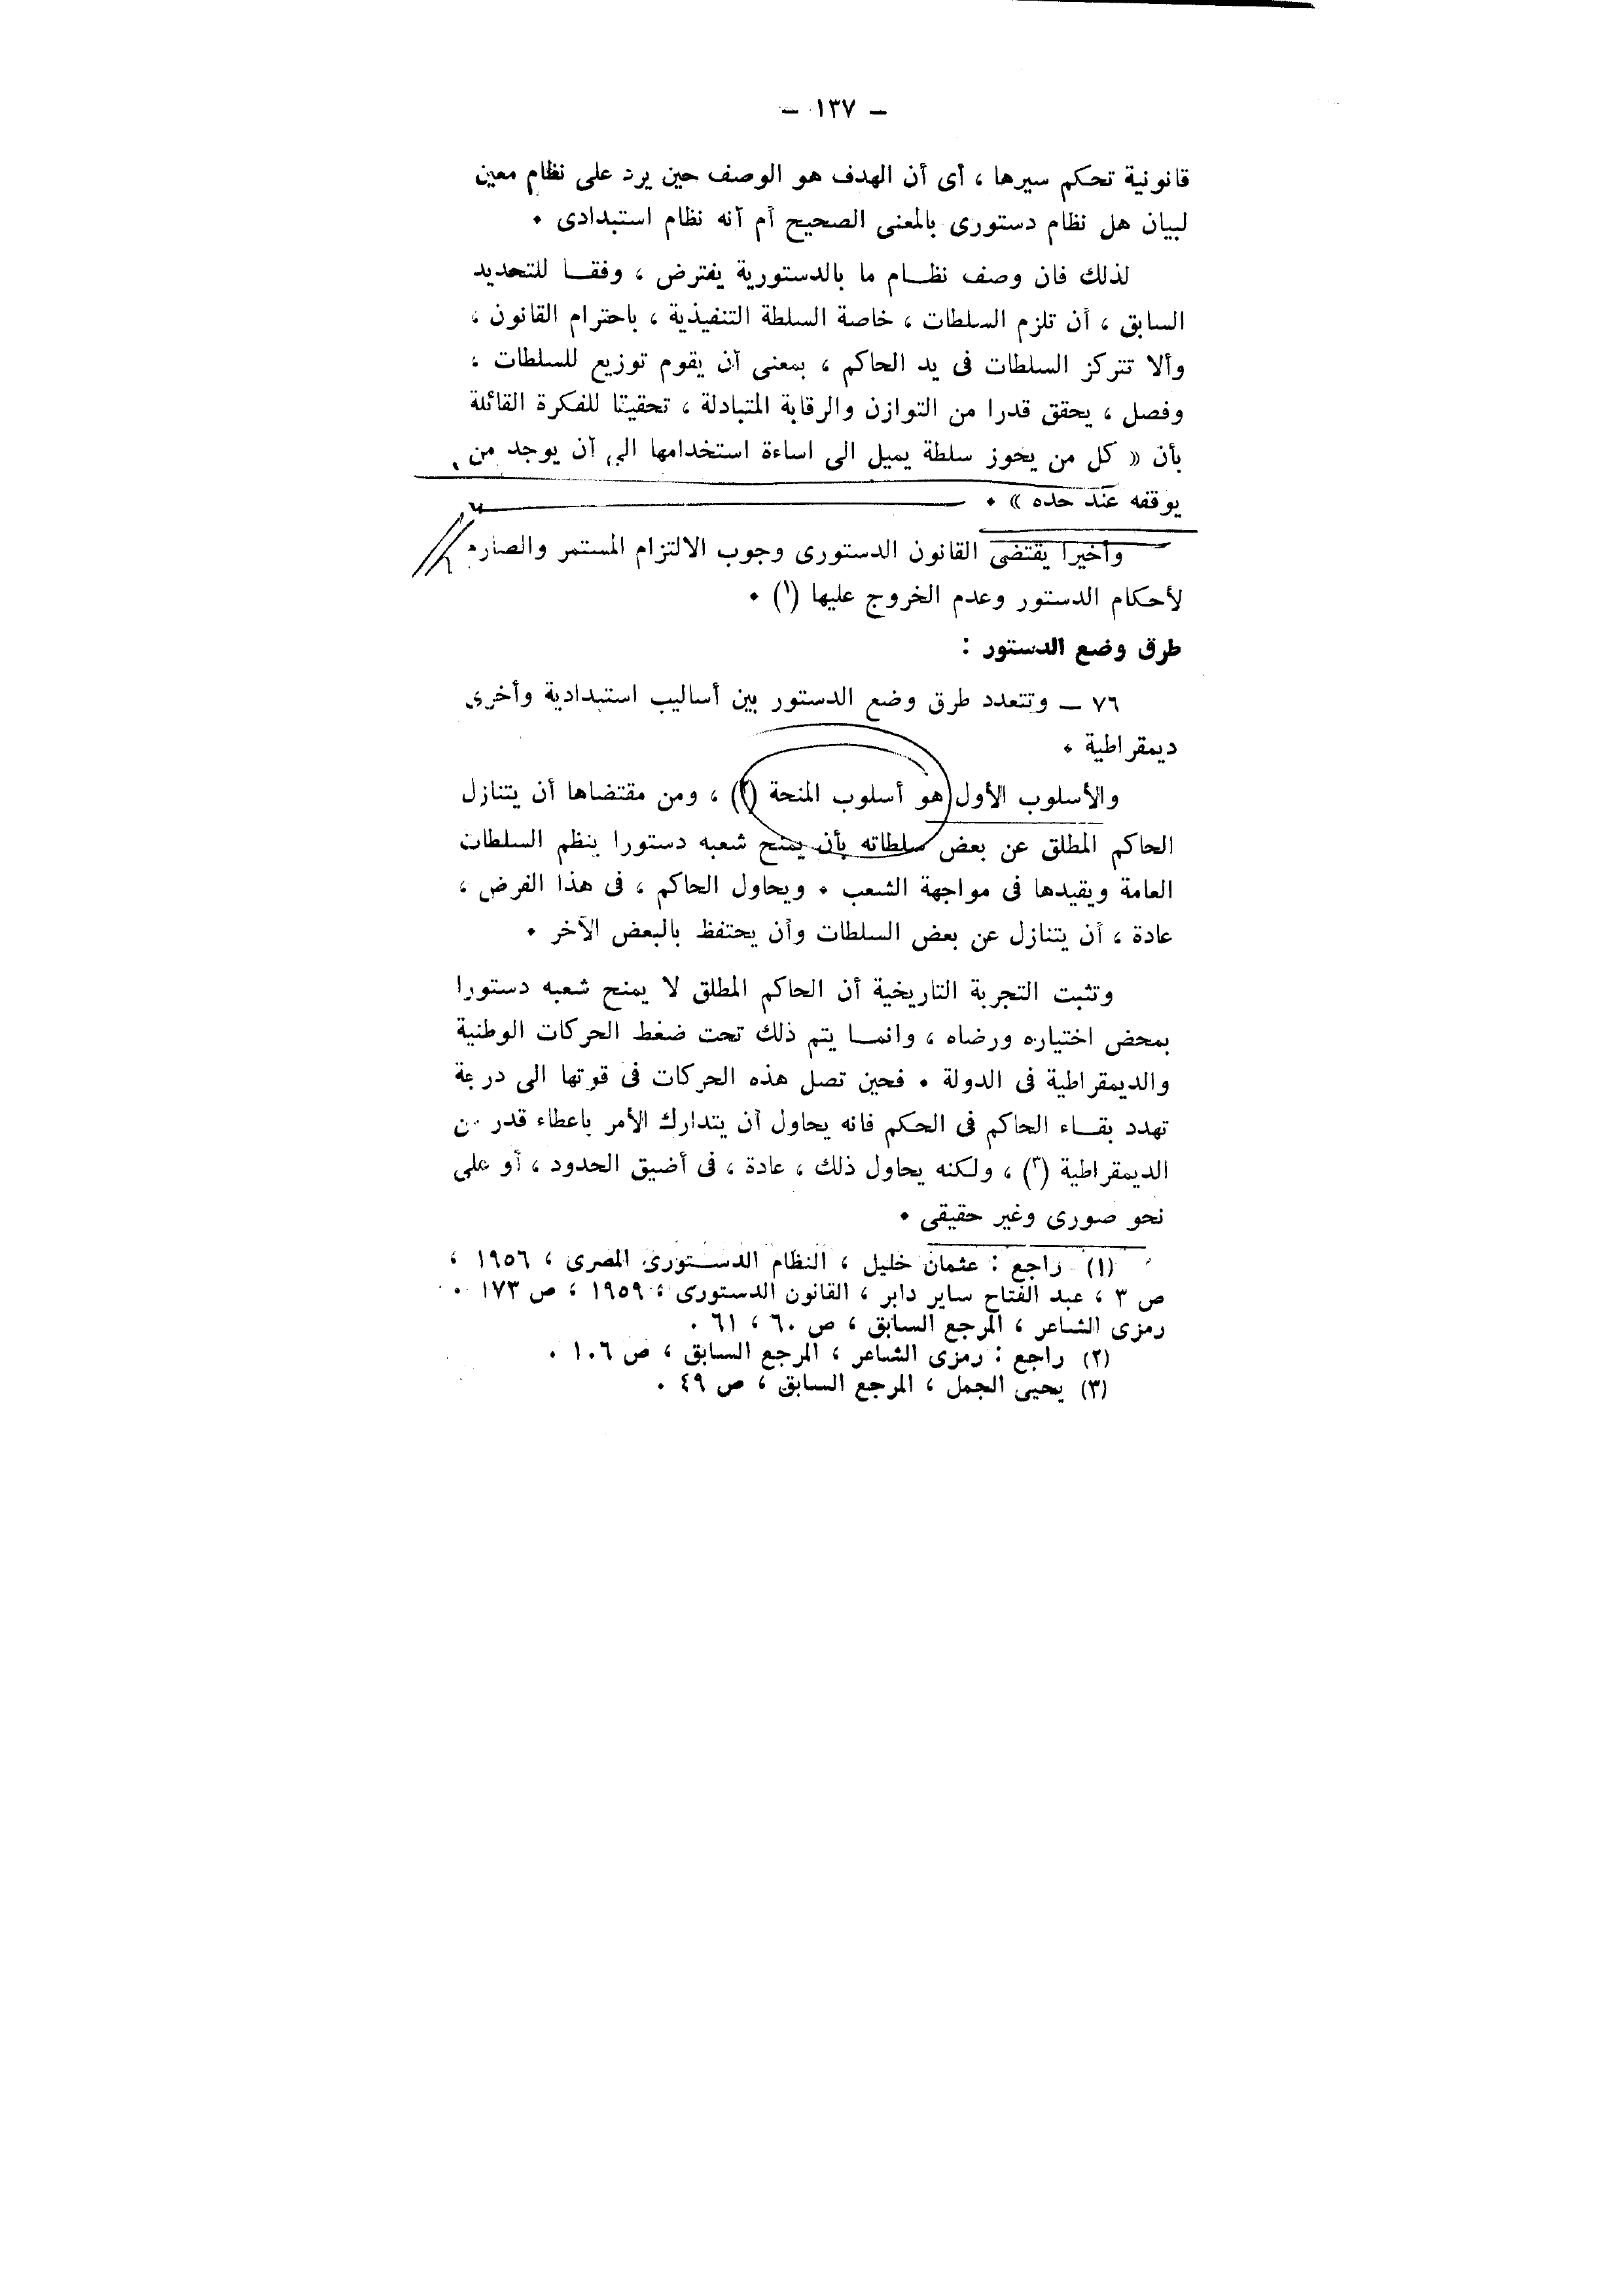 — ١٣٧ —
قانونية تحكم سيرها ، أى أن الهدف هو الوصف حين يرد على نظام معين
لبيان هل نظام دستورى بالمعنى الصحيح أم أنه نظام استبدادى ٠
لذلك فان وصف نظــام ما بالدستورية يفترض ، وفقــا للتحديد
السابق ، أن تلزم السلطات ، خاصة السلطة التنفيذية ، باحترام القانون ،
وألا تتركز السلطات فى يد الحاكم ، بمعنى أن يقوم توزيع للسلطات ،
وفصل ، يحقق قدرا من التوازن والرقابة المتبادلة ، تحقيقا للفكرة القائلة
بأن « كل من يحوز سلطة يميل الى اساءة استخدامها الى أن يوجد من
يوقفه عند حده » ٠
وأخيرا يقتضى القانون الدستورى وجوب الالتزام المستمر والصارم
لأحكام الدستور وعدم الخروج عليها (١) ٠
طرق وضع الدستور :
٧٦ — وتتعدد طرق وضع الدستور بين أساليب استبدادية وأخرى
ديمقراطية ٠
والأسلوب الأول هو أسلوب المنحة (٢) ، ومن مقتضاها أن يتنازل
الحاكم المطلق عن بعض سلطاته بأن يمنح شعبه دستورا ينظم السلطات
العامة ويقيدها فى مواجهة الشعب ٠ ويحاول الحاكم ، فى هذا الفرض ،
عادة ، أن يتنازل عن بعض السلطات وأن يحتفظ بالبعض الآخر ٠
وتثبت التجربة التاريخية أن الحاكم المطلق لا يمنح شعبه دستورا
بمحض اختياره ورضاه ، وانمــا يتم ذلك تحت ضغط الحركات الوطنية
والديمقراطية فى الدولة ٠ فحين تصل هذه الحركات فى قوتها الى درجة
تهدد بقــاء الحاكم فى الحكم فانه يحاول أن يتدارك الأمر باعطاء قدر من
الديمقراطية (٣) ، ولكنه يحاول ذلك ، عادة ، فى أضيق الحدود ، أو على
نحو صورى وغير حقيقى ٠
(١) راجع : عثمان خليل ، النظام الدســتورى المصرى ، ١٩٥٦ ،
ص ٣ ، عبد الفتاح ساير داير ، القانون الدستورى ، ١٩٥٩ ، ص ١٧٣ ٠
رمزى الشاعر ، المرجع السابق ، ص ٦٠ ، ٦١ ٠
(٢) راجع : رمزى الشاعر ، المرجع السابق ، ص ١٠٦ ٠
(٣) يحيى الجمل ، المرجع السابق ، ص ٤٩ ٠